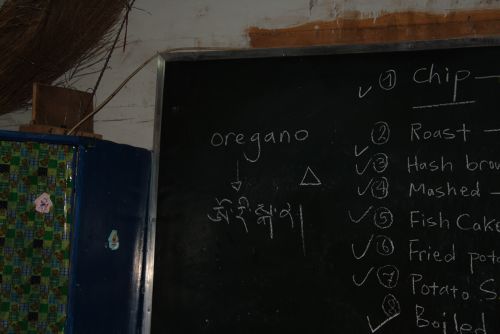 oregano
① Chip —
② Roast —
③ Hash brow
④ Mashed —
⑤ Fish Cake
⑥ Fried pota
⑦ Potato S
⑧ Boiled